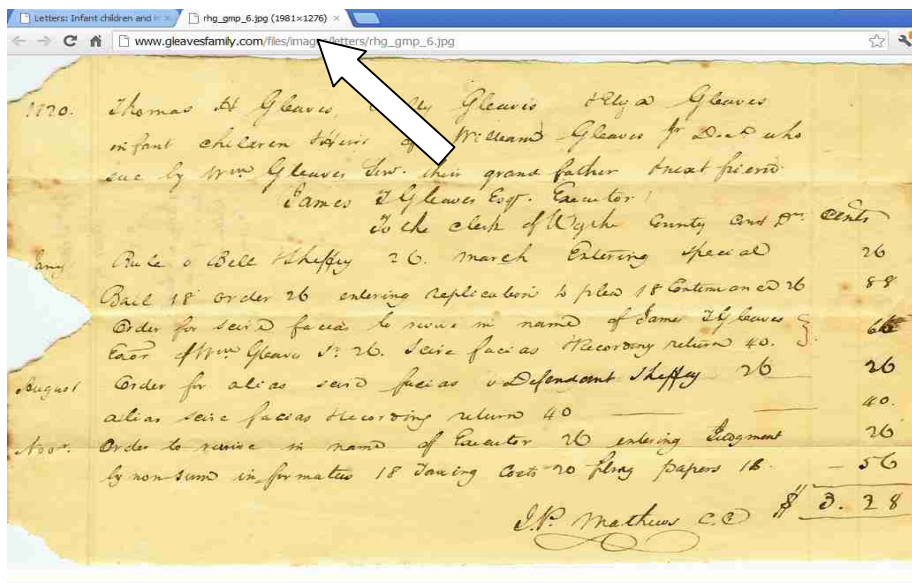 Letters: Infant children and
rhg_gmp_6.jpg (1981×1276)
www.gleavesfamily.com/files/image letters/rhg_gmp_6.jpg
1820. Thomas H Gleaves, Gleaves & Elyza Gleaves
infant children & heirs of William Gleaves Jr Decd who
sue by Wm Gleaves Senr. their grand father & next friend
James T Gleaves Esqr. Executor
To the clerk of Wythe County Court Dr. Cents
Rule v Bell & Sheffey 26. March Entering Special 26
Bail 18 order 26 entering replication to plea 18 Continuance 26 88
Order for scire facias to revive in name of James T Gleaves
Exor of Wm Gleaves Sr. 26. Scire facias & Recording return 40. 66
August Order for alias scire facias v Defendant Sheffey 26 26
alias scire facias & Recording return 40 40.
Novr. Order to revive in name of Executor 26 entering Judgment 26
by non sum informatus 18 Taxing Costs 20 filing papers 18. 56
J.P. Mathews C.C. $ 3.28